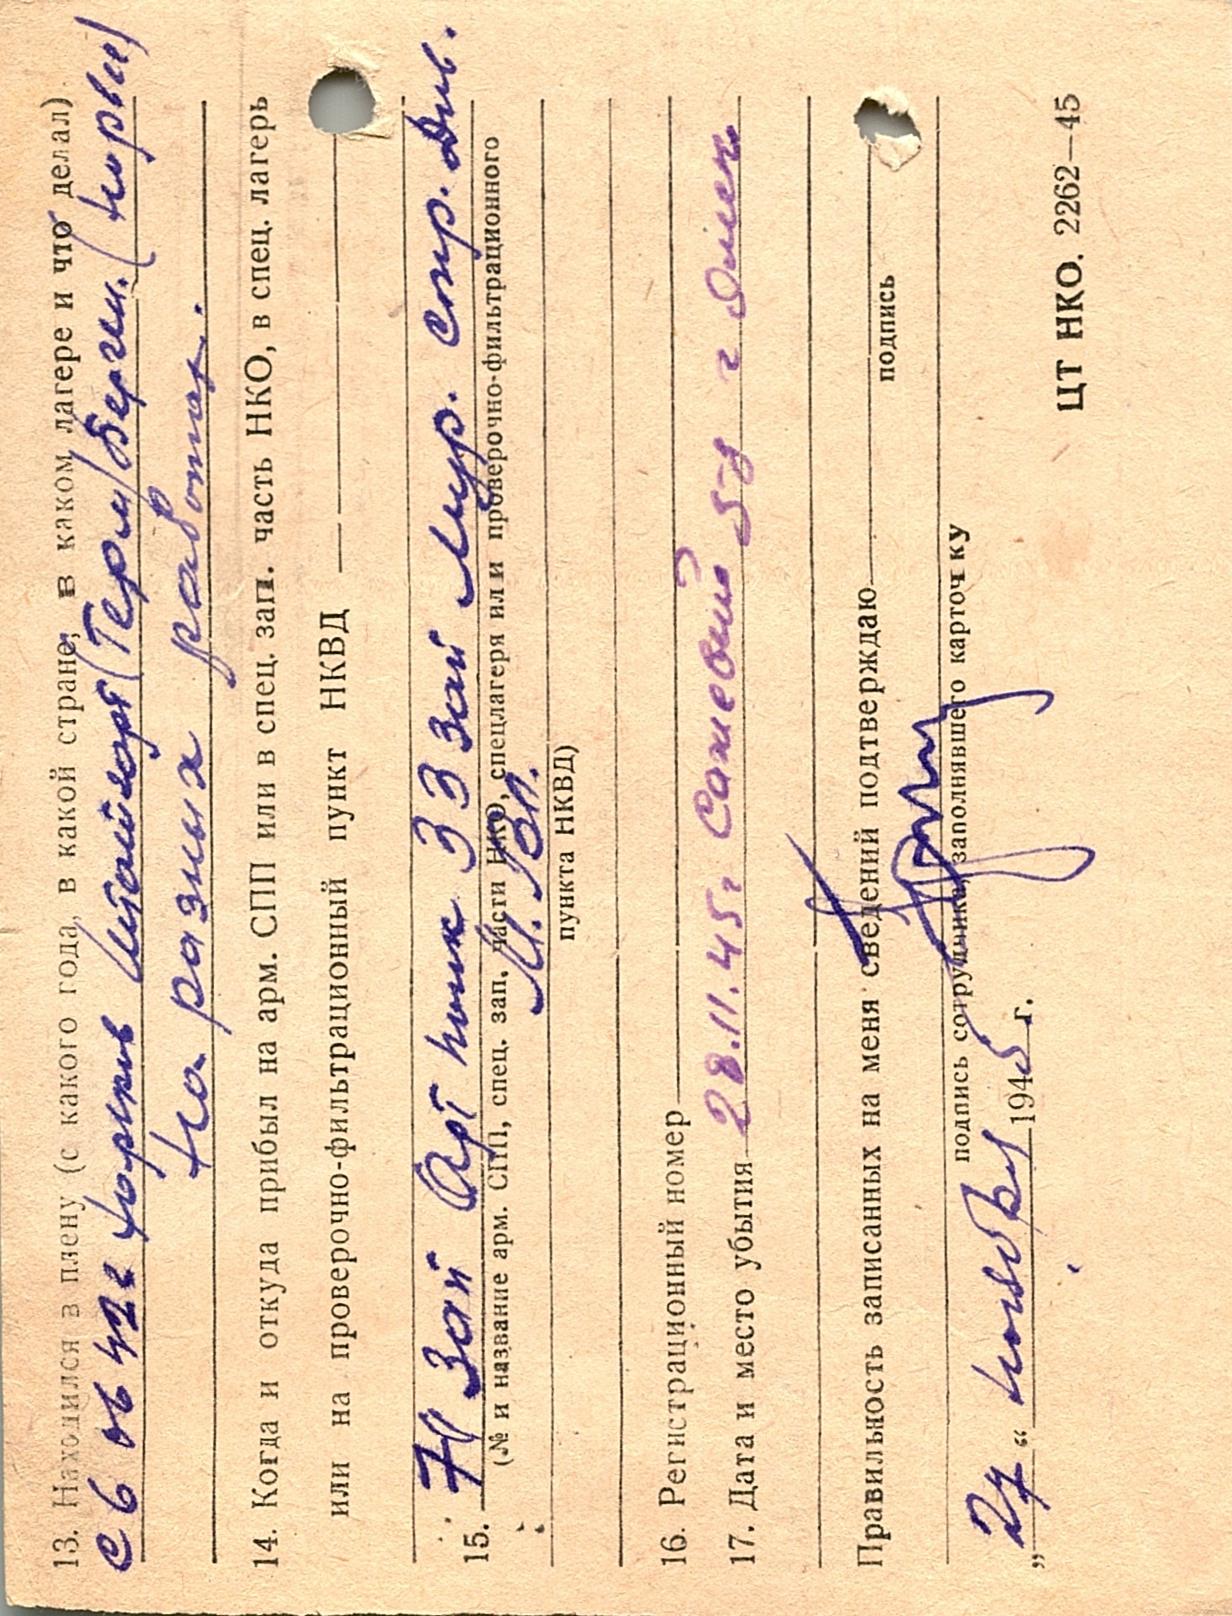 13. Находился в плену (с какого года, в какой стране, в каком лагере и что делал)
с 6 06 42г горгив (Герм/Берген. (Норвег)
на разных работах.
14. Когда и откуда прибыл на арм. СПП или в спец. зап. часть НКО, в спец. лагерь
или на проверочно-фильтрационный пункт НКВД
15. 71 Зап Арт полк 33 Зап Мур. стр. див.
(№ и название арм. СПП, спец. зап. части НКО, спецлагеря или проверочно-фильтрационного
пункта НКВД)
16. Регистрационный номер
17. Дата и место убытия 28.11.45г 5-8 г
Правильность записанных на меня сведений подтверждаю
подпись
подпись сотрудника, заполнявшего карточку
„27“ ноября 1945 г.
ЦТ НКО. 2262—45